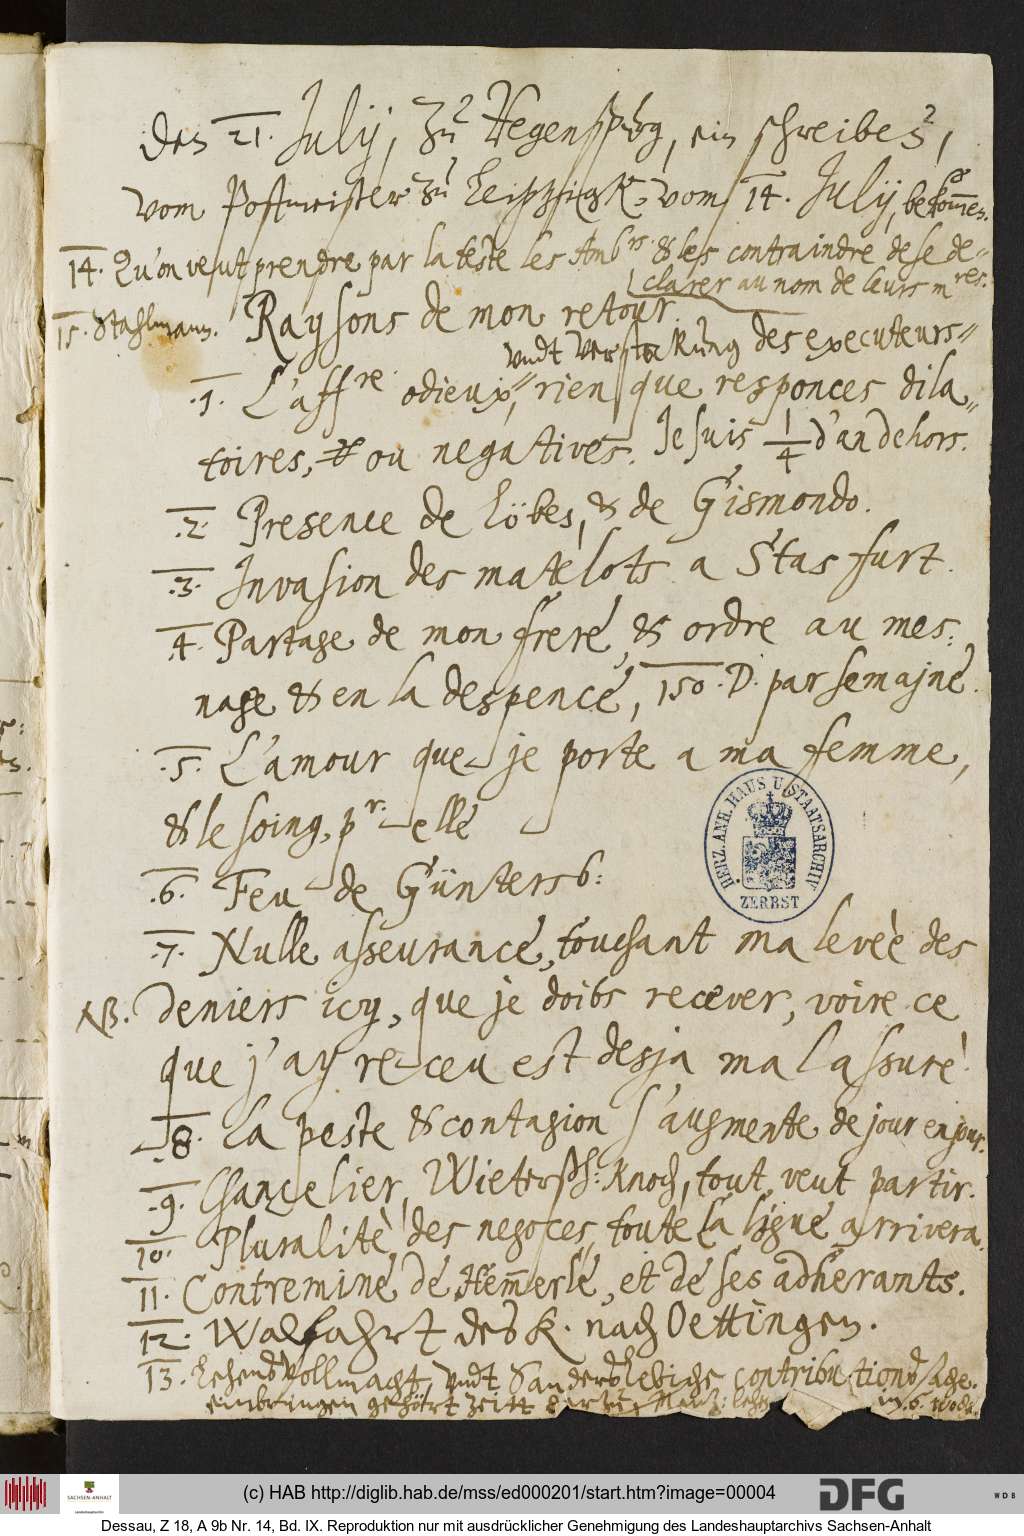 Den 21. Julij, zu Regenspurg, ein schreiben,
vom Postmeister zu Leiptzigk, vom 14. Julij, bekommen.
14. Qu'on veut prendre par la teste les Amb.rs & les contraindre de se de=
clarer au nom de leurs m.res.
15. Stahlmann. Raysons de mon retour.
undt verstärkung des executeurs=
.1. L'aff.re odieux, rien que responces dila=
toires, & ou negatives. Je suis 1/4 d'an dehors.
.2. Presence de Löbes, & de Gismondo.
.3. Invasion des matelots a Stasfurt.
.4. Partage de mon frere, & ordre au mes:
nage & en la despence, 150. D. par semajne.
.5. L'amour que je porte a ma femme,
& le soing, p.r elle
.6. Feu de Güntersb:
.7. Nulle asseurance, touchant ma levèe des
NB. deniers icy, que je doibs recever, voire ce
que j'ay receu est desja mal assurè.
.8. La peste & contagion s'augmente de jour en jour.
.9. Chancelier, Wietersh: Knoch, tout veut partir.
10. Pluralitè des negoces, toute la ligue arrivera.
11. Contremine de Hemmerle, et de ses adherants.
12. Walfahrt des K. nach Oettingen.
13. Lehens Vollmacht, undt Sanderslebische contributions sache.
einbringen gehört zeitt darzu,
HERZ. ANH. HAUS U. STAATSARCHIV
ZERBST
SACHSEN-ANHALT
Landeshauptarchiv
(c) HAB http://diglib.hab.de/mss/ed000201/start.htm?image=00004
DFG
WDB
Dessau, Z 18, A 9b Nr. 14, Bd. IX. Reproduktion nur mit ausdrücklicher Genehmigung des Landeshauptarchivs Sachsen-Anhalt